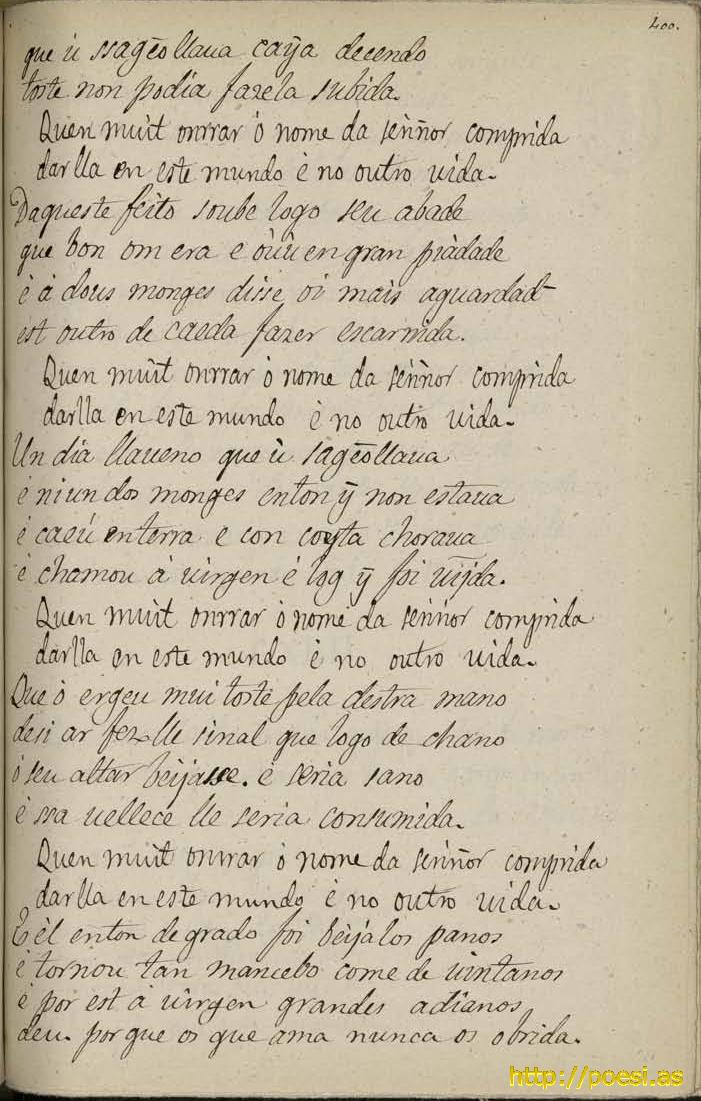 400.
que ú ssagẽollaua caỹa decendo
toste non podia fazela subida.
Quen muit onrrar ò nome da señnor comprida
darlla en este mundo è no outro uida.
Daqueste feito soube logo seu abade
que bon om era e òùùen gran piàdade
è à dous monges disse oi mais aguardad
est outro de caeda fazer escarmida.
Quen muit onrrar ò nome da señnor comprida
darlla en este mundo è no outro uida.
Un dia llaueno que ù sagẽollaua
è niun dos monges enton ỹ non estaua
è caeú enterra e con coyta choraua
è chamou à uirgen è log ỹ foi uĩjda.
Quen muit onrrar ò nome da señnor comprida
darlla en este mundo è no outro uida.
Que ò ergeu mui toste pela destra mano
desi ar fez lle sinal que logo de chano
ò seu altar beijasse. è seria sano
è ssa uellece lle seria consumida.
Quen muit onrrar ò nome da señnor comprida
darlla en este mundo è no outro uida.
E èl enton de grado foi beijàlos panos
è tornou tan mancebo come de uintanos
è por est à uirgen grandes adianos
deu. porque os que ama nunca os obrida.
http://poesi.as